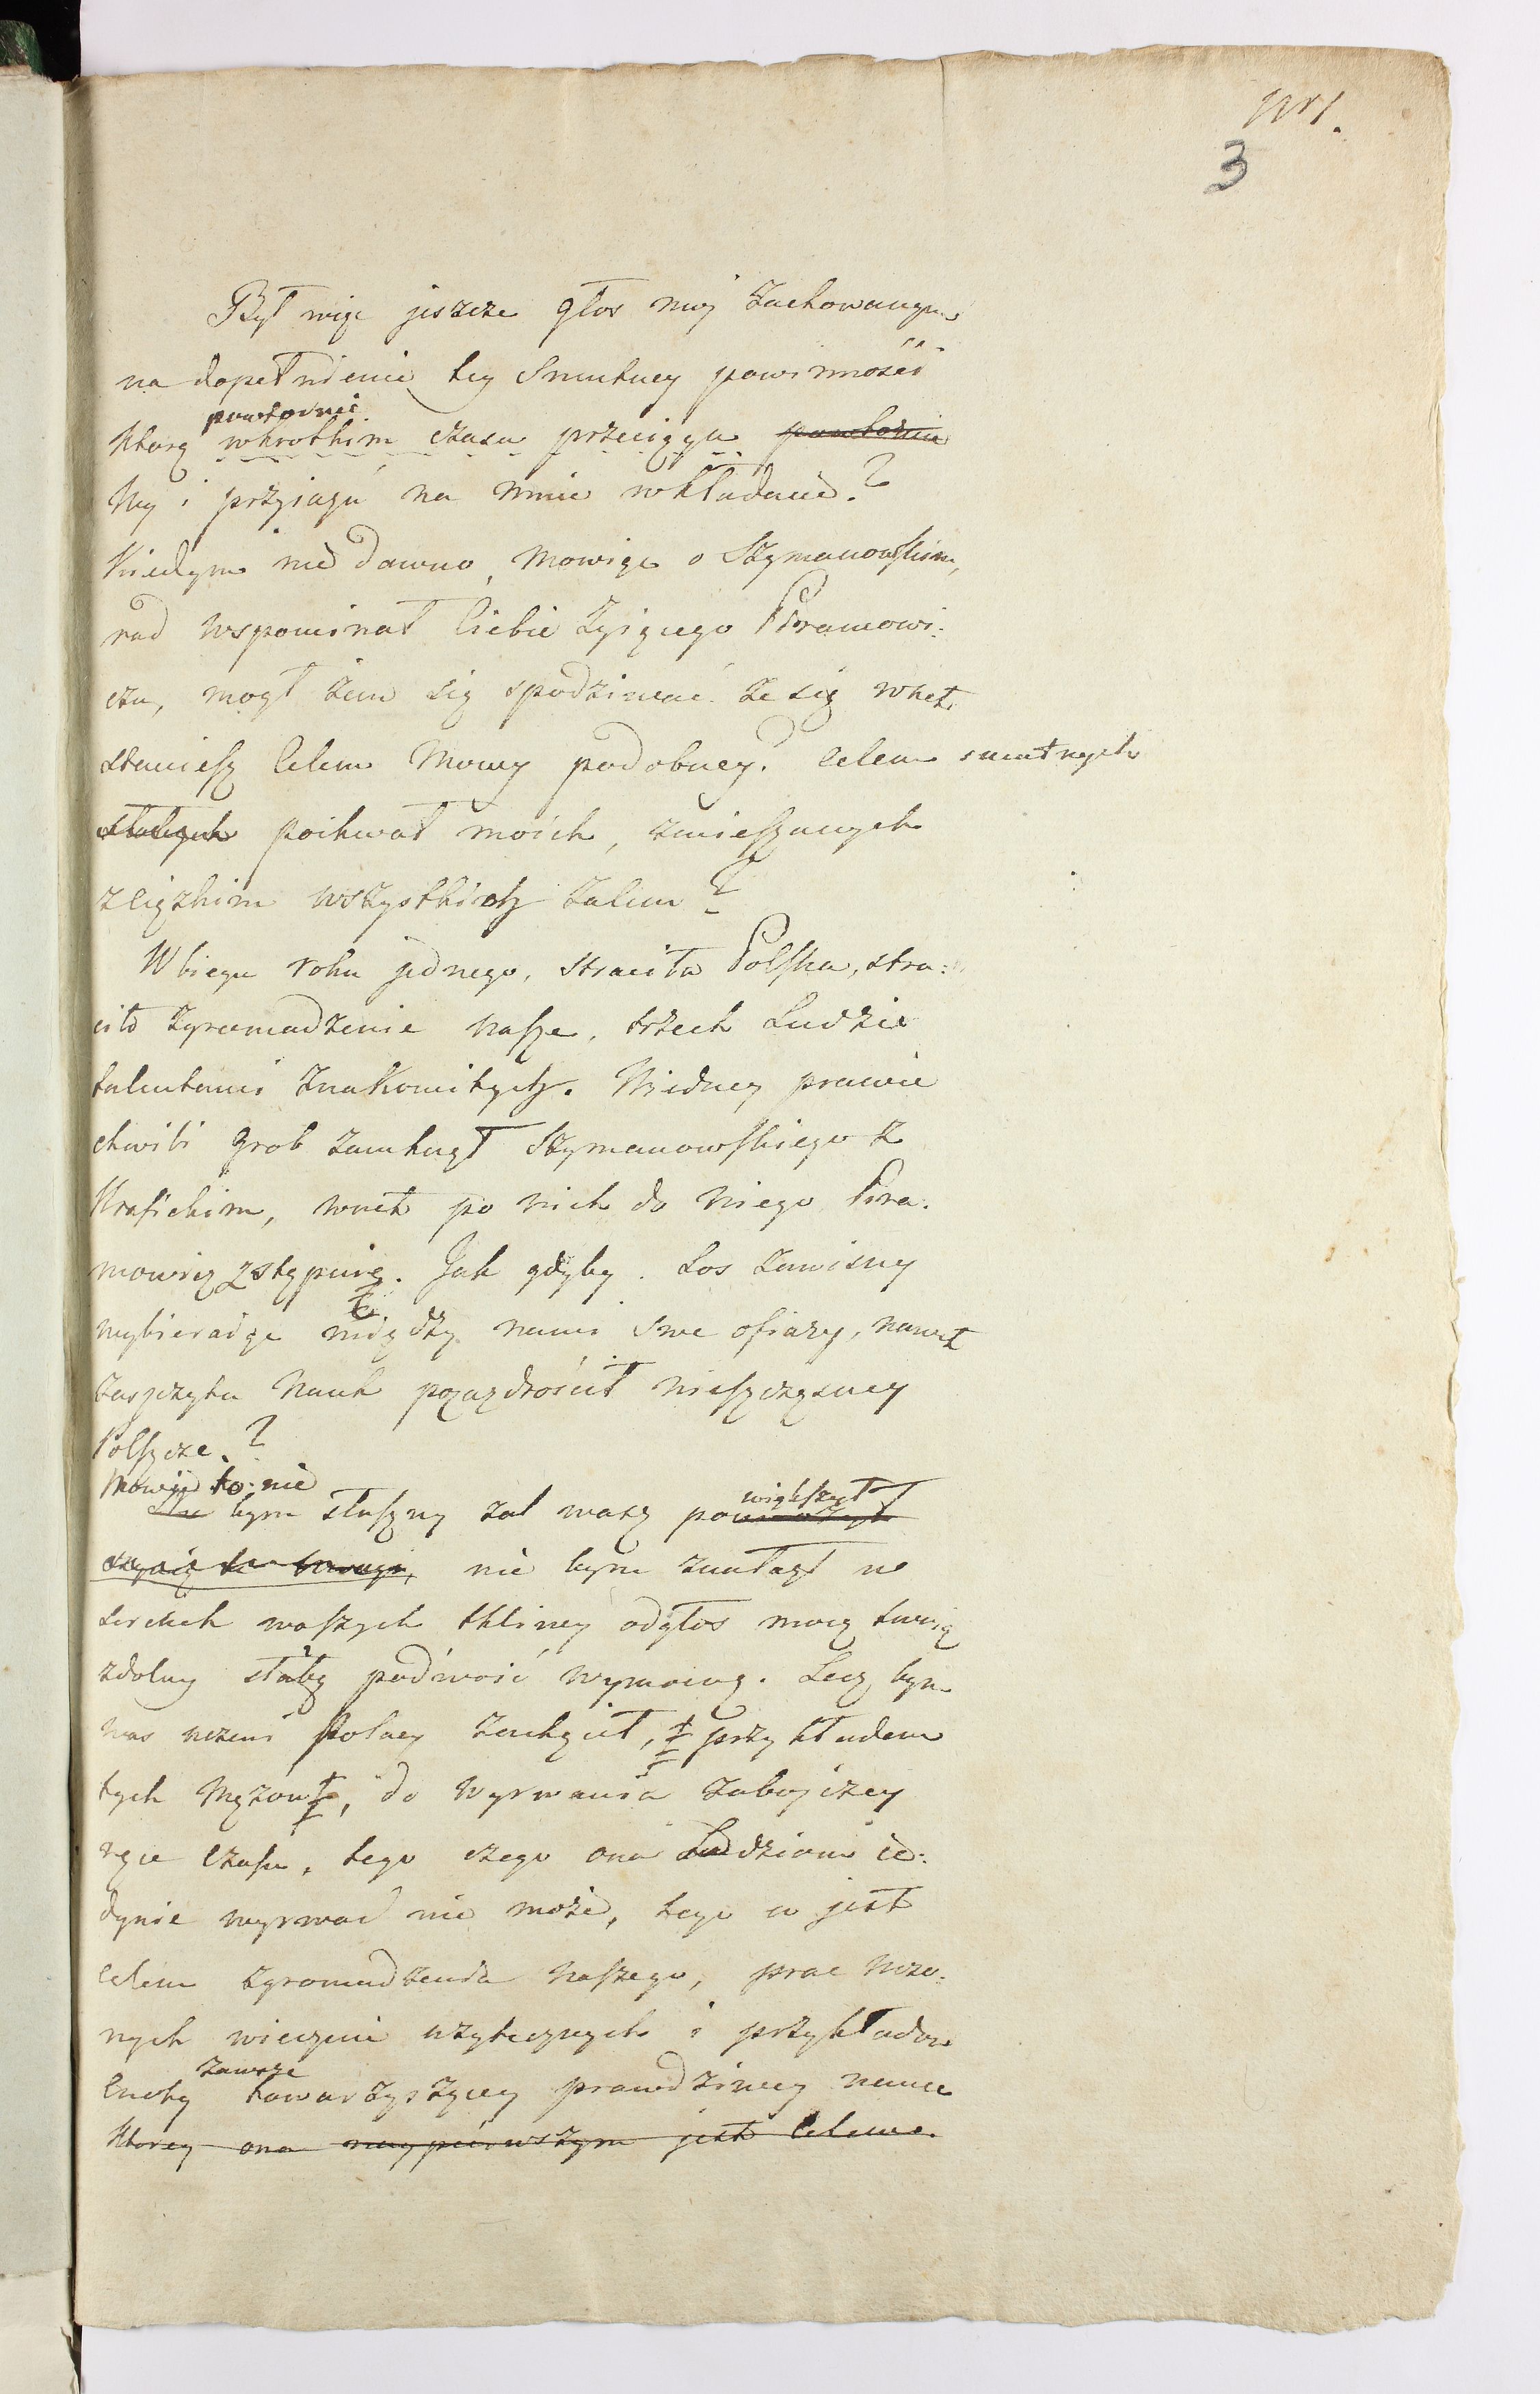 Nr 1.
3
Był więc jeszcze głos mój zachowanym
na dopełnienie tey smutney powinności
powtornie
Którą wkrotkim czasu przeciągu powtornie
Wy i przyiaźń na mnie wkładacie?
Kiedym nie dawno, mowiąc o Szymanowskim,
rad wspominał Ciebie żyiącego Piramowi:
czu, mogł żem się spodziewać że się wnet
staniesz Celem Mowy podobney. celem smutnych
stałych pochwał moich, zmieszanych
z ciężkim wszystkich żalem?
W biegu roku jednego, straciła Polska, stra:
ciło Zgromadzenie nasze, trzech Ludzi
talentami znakomitych. W jedney prawie
chwili Grob zamknął Szymanowskiego z
Krasickim, wnet po nich do niego Pira:
mowicz zstępuie. Jak gdyby Los zawisny
wybieraiąc między nami swe ofiary, nawet
zaszczytu Nauk pozazdrościł nieszczęsney
Polszcze?
Mowię to: nie
bym słuszny żal wasz powiększył
nie bym znalazł w
sercach waszych tkliwey odgłos
zdolny słabą podnosić wymową. Lecz bym
was uczeni Polacy zachęcił, przykładem
tych Mężow, do wyrwania zaboyczey
ręce Czasu, tego czego ona Ludziom ie:
dynie wyrwać nie może, tego co jest
celem zgromadzenia naszego, prac ucze:
nych wiecznie użytecznych i przykładow
zawsze
Cnoty towarzyszącey prawdziwey nauce
Ktorey ona naypierwszym jest Celem.